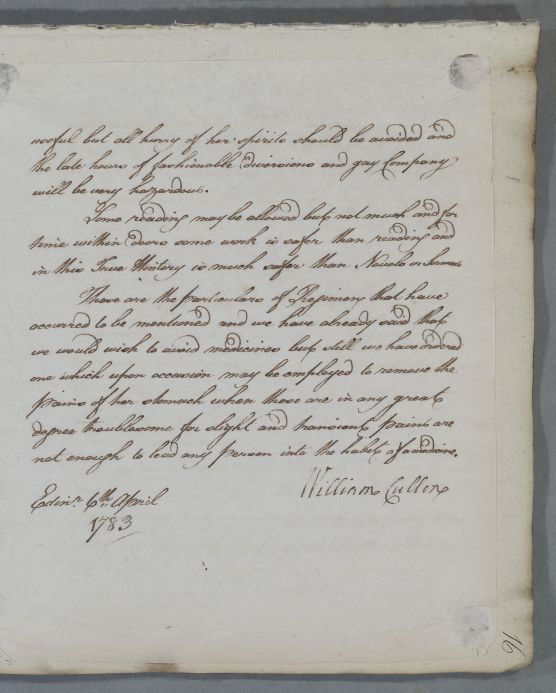 useful but all hurry of her spirits should be avoided and
the late hours of fashionable diversions and gay Company
will be very hazardous.
Some reading may be allowed but not much and for
time within doors some work is safer than reading and
in this True History is much safer than Novels or
These are the particulars of Regimen that have
occurred to be mentioned and we have already said that
we would wish to avoid medicines but still we have ordered
one which upon occasion may be employed to remove the
pains of her stomach when these are in any great
degree troublesome for slight and transient pains are
not enough to lead any person into the habit of a medicine.
William Cullen
Edinr. 6th. April
1783
16